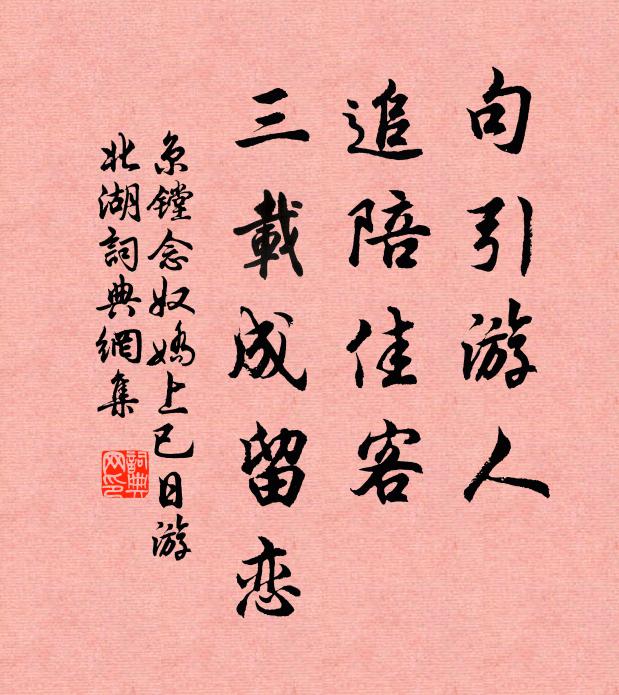 句引游人
追陪佳客
三載成留恋
京鏜念奴嬌上巳日游
北湖詞典網集
詞典網印